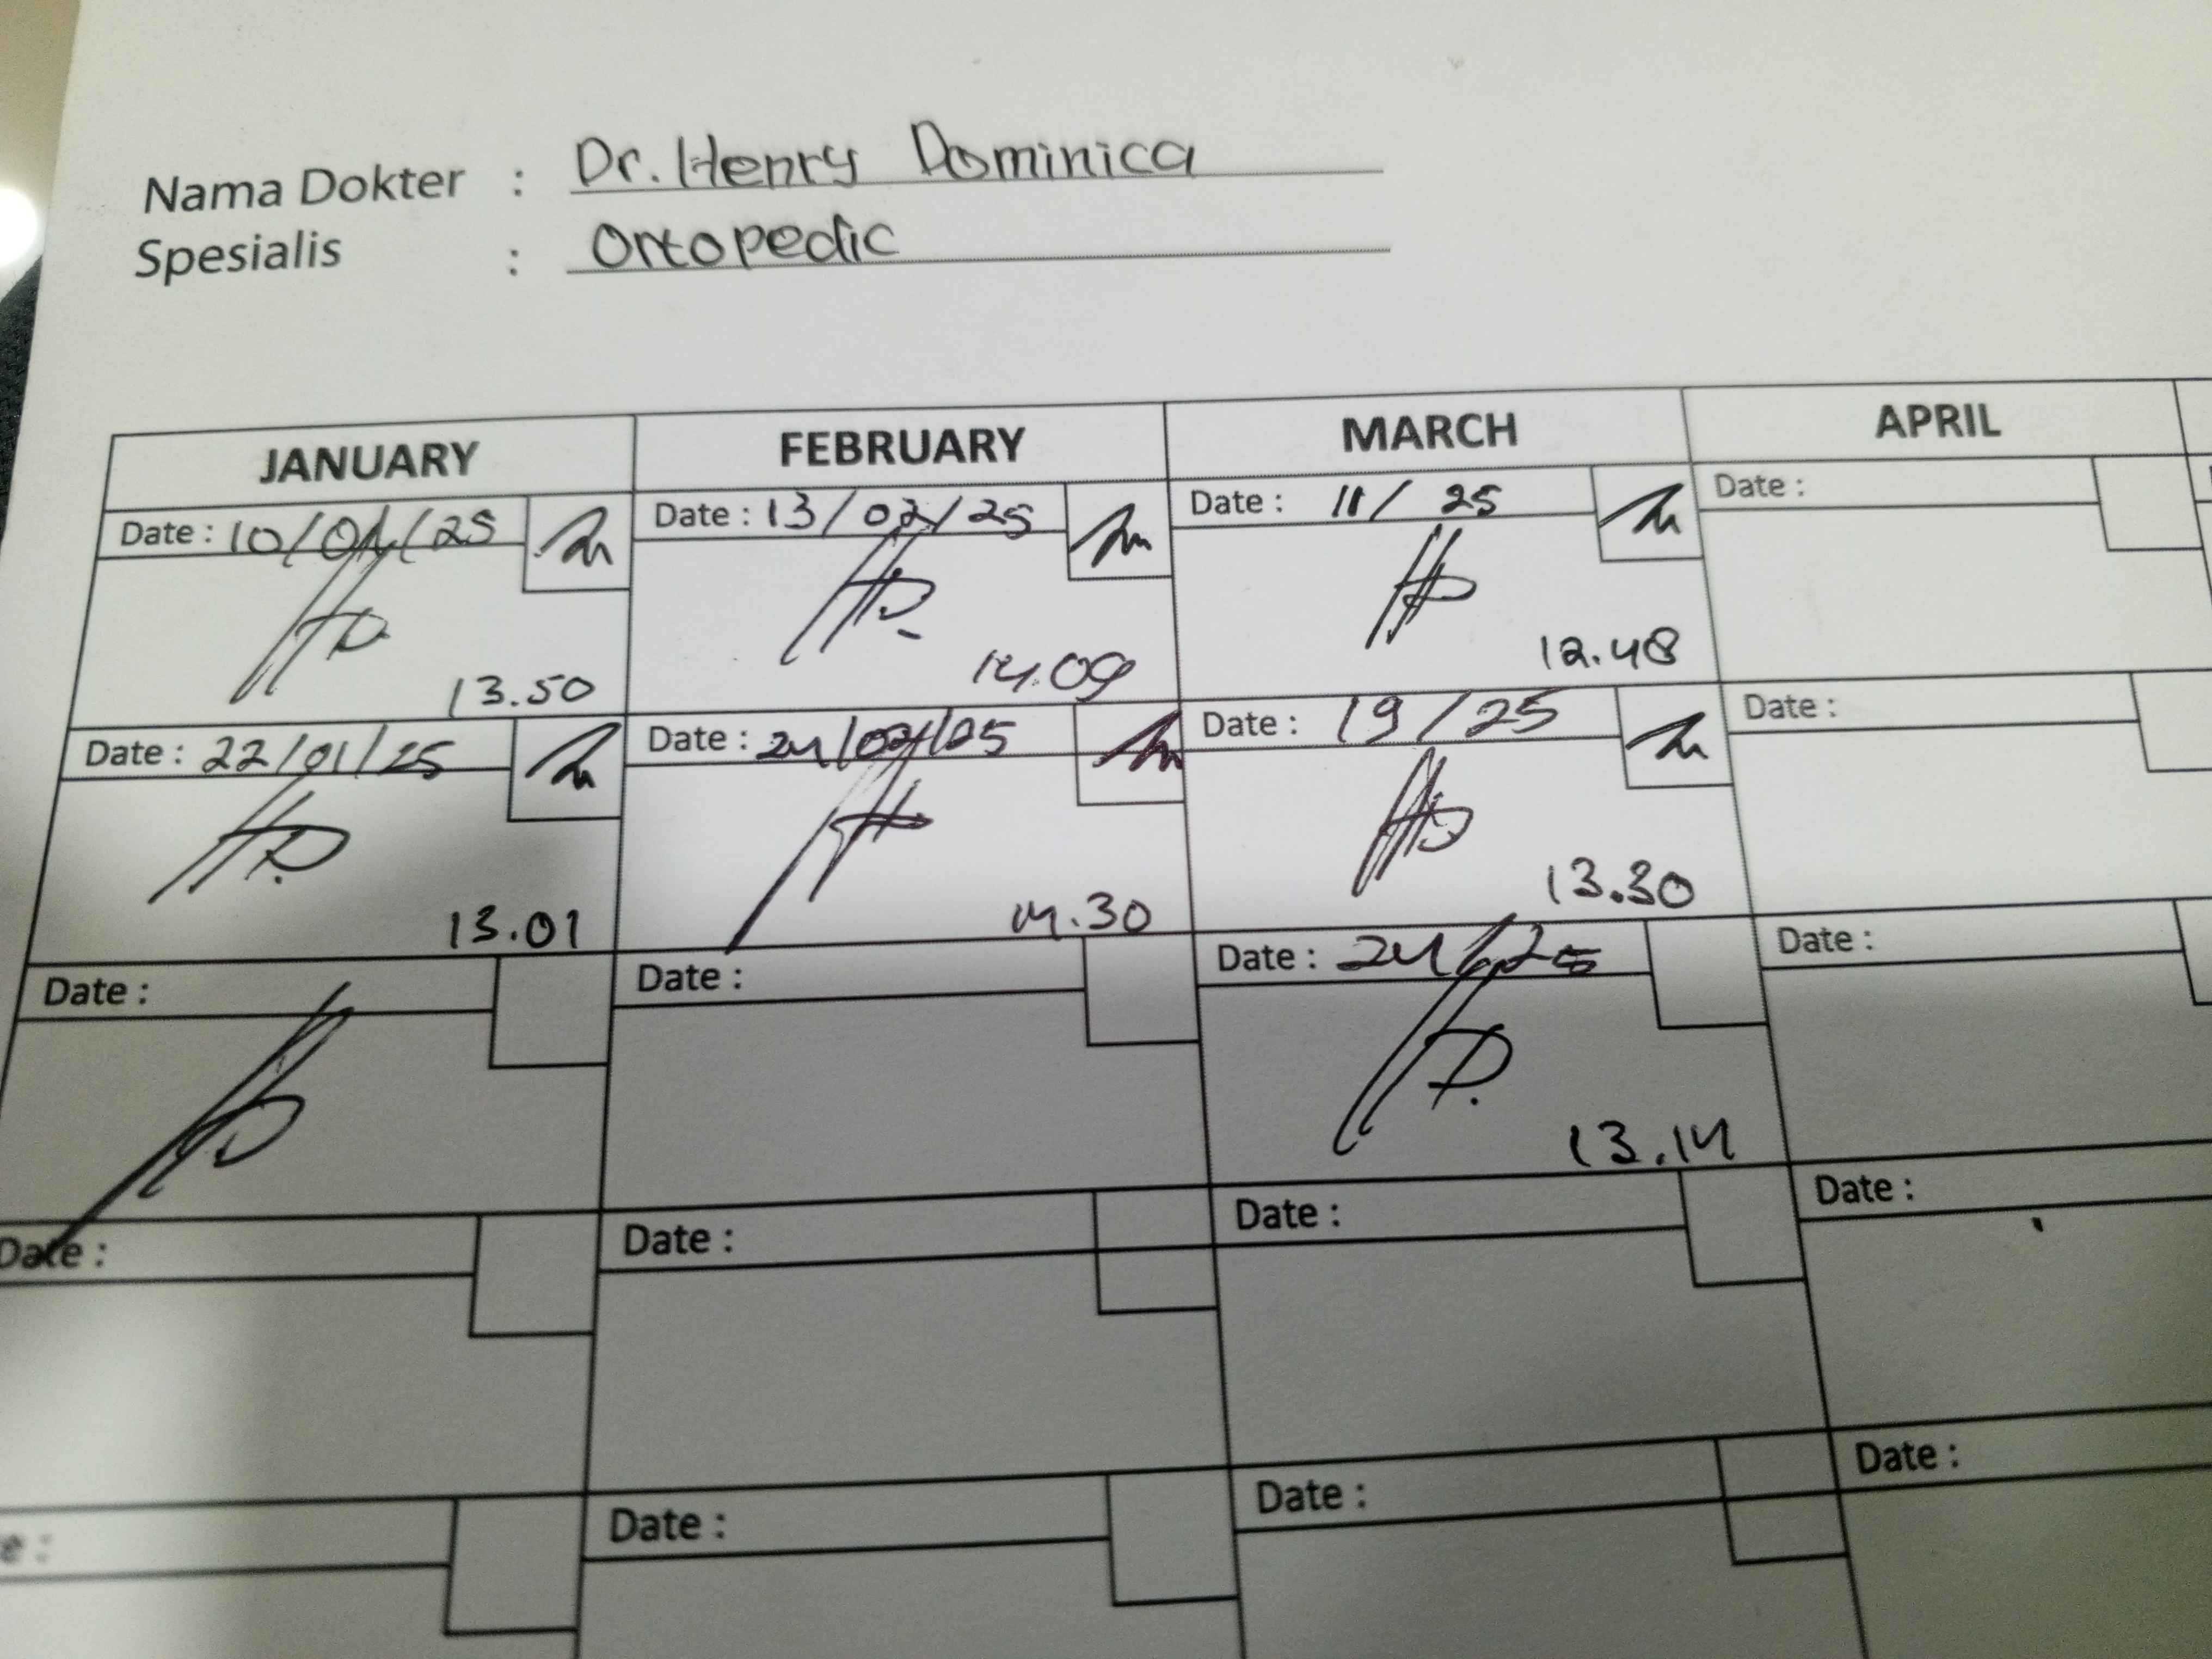 Nama Dokter : Dr. Henry Dominica
Spesialis : Ortopedic
JANUARY FEBRUARY MARCH APRIL
Date : 10/01/25 Date : 13/02/25 Date : 11/ 25 Date :
13.50 14.09 12.48
Date : 22/01/25 Date : 24/02/25 Date : 19/25 Date :
13.01 14.30 13.30
Date : Date : Date : 24/25 Date :
13.14
Date : Date : Date : Date :
e : Date : Date : Date :